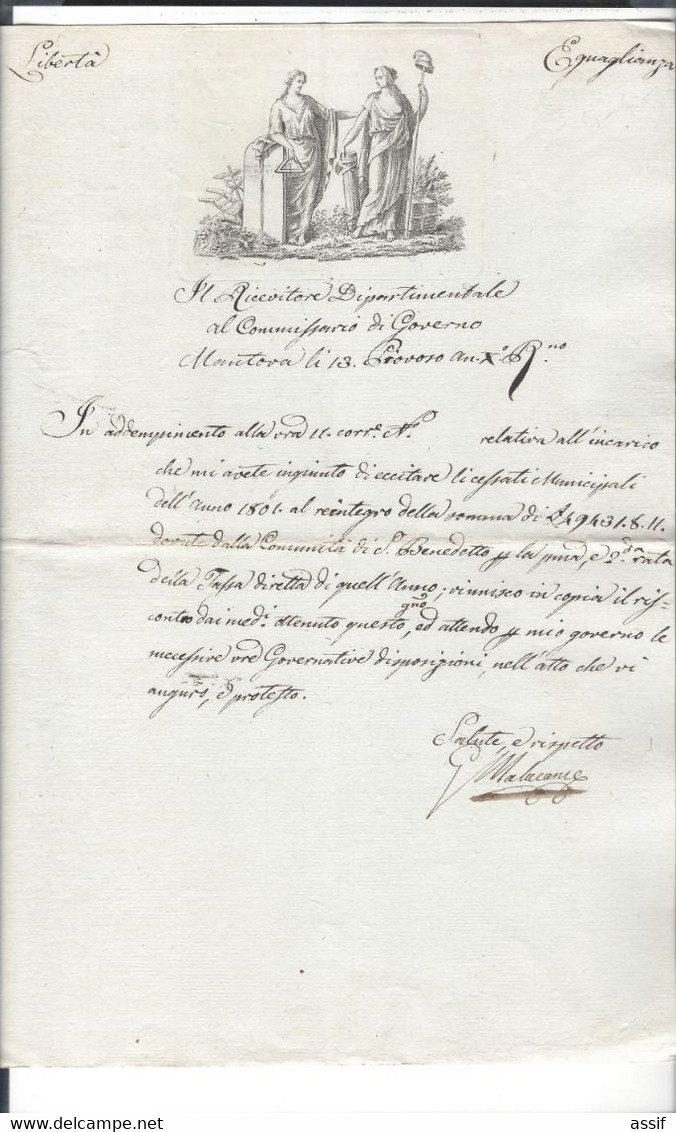 Libertà Eguaglianza
Il Ricevitore Dipartimentale
al Commissario di Governo
Mantova li 13. Piovoso an. X.º R.no
In addempimento alla vra 11. corr.e N.º relativa all'incarico
che mi avete ingiunto di eccitare li cessati Municipali
dell'Anno 1801. al reintegro della somma di 49431.8.11.
dovute dalla Comunità di S. Benedetto la pma, e 2.da rata
della Tassa diretta di quell'Anno; vi unisco in copia il ris=
contro dai med.i ottenuto questo gno, ed attendo mio governo le
successive vre Governative disposizioni, nell'atto che vi
auguro, e protesto.
Salute, e rispetto
Malacarne
assif